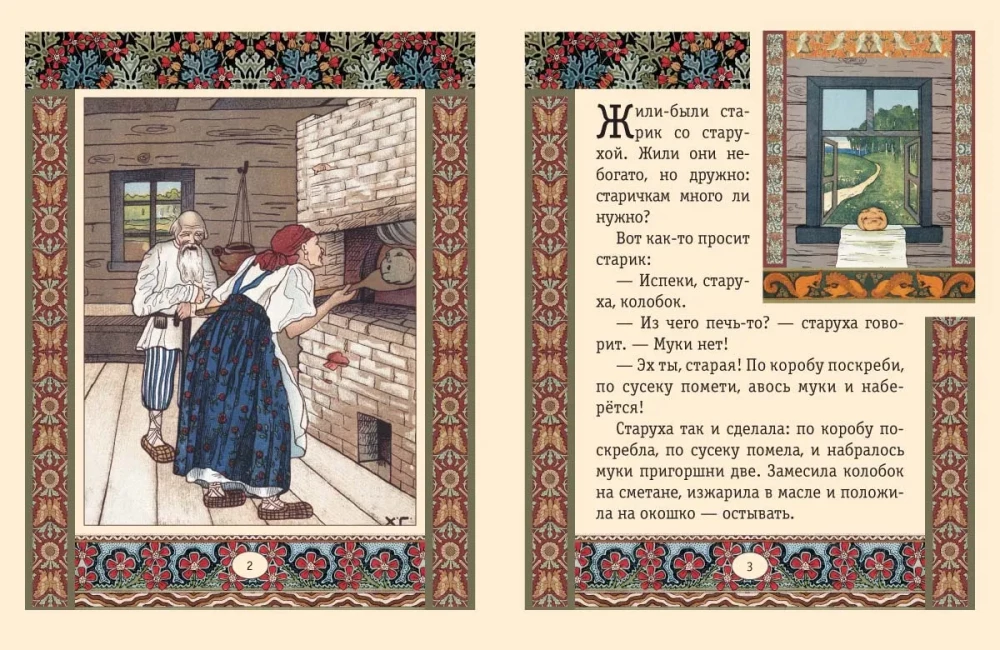 ХГ
2
Жили-были ста-
рик со стару-
хой. Жили они не-
богато, но дружно:
старичкам много ли
нужно?
Вот как-то просит
старик:
— Испеки, стару-
ха, колобок.
— Из чего печь-то? — старуха гово-
рит. — Муки нет!
— Эх ты, старая! По коробу поскреби,
по сусеку помети, авось муки и набе-
рётся!
Старуха так и сделала: по коробу по-
скребла, по сусеку помела, и набралось
муки пригоршни две. Замесила колобок
на сметане, изжарила в масле и положи-
ла на окошко — остывать.
3